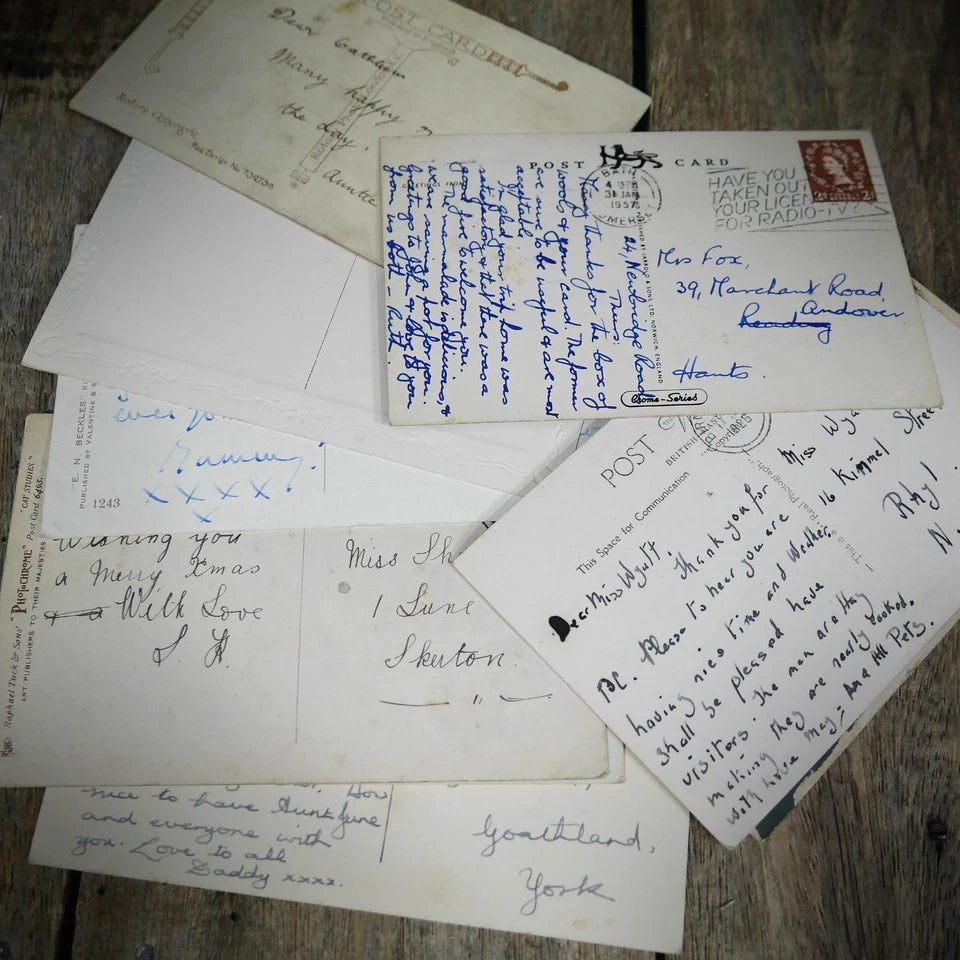 POST CARD
Dear
Many happy
the day.
Auntie
Rotary Copyright.
POST CARD
GREETINGS FROM
4 15 PM
31 JAN
1957
HAVE YOU
TAKEN OUT
YOUR LICEN
FOR RADIO-TV?
24, Newbridge Road
Thurs.
Many thanks for the box of
wools & your card. The former
are sure to be useful & are most
acceptable.
I'm glad your trip home was
satisfactory & that there was a
good fire to welcome you.
The marmalade is delicious, &
we are saving a pot for you.
Greetings to & love to you
from us both - Ruth.
& SONS LTD. NORWICH, ENGLAND
Mrs Fox,
39, Marchant Road,
Andover
Reading
Hants.
"E. N. BECKLES" KI
PUBLISHED BY VALENTINE & S
1243
ever
Mummy!
x x x x
x
Raphael Tuck & Sons' "PHOTOCHROME" "CAT STUDIES." Post Card 6405.
ART PUBLISHERS TO THEIR MAJESTIES
Wishing you
a Merry Xmas
With Love
S. H.
Miss Sh
1 Lune
Skerton.
"
POST
BRITISH
This Space for Communication
This is a "Real Photograph."
Dear Miss Wyatt Thank you for
PC. Please to hear you are
having nice time and Weather.
shall be pleased have
visitors. The men are thy
making they are really cooked.
with love May; And All Pets.
Miss Wya
16 Kimmel Stree
Rhyl.
N.
nice to have Aunt June
and everyone with
you. Love to all
Daddy xxxx.
Goathland,
York